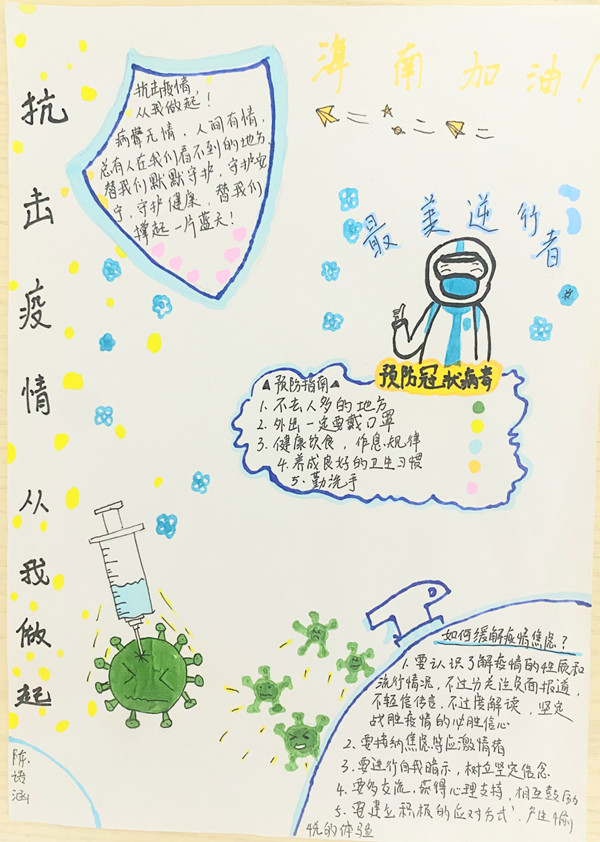 抗击疫情从我做起
抗击疫情,
从我做起!
病毒无情,人间有情,
总有人在我们看不到的地方,
替我们默默守护,守护安
宁,守护健康,替我们
撑起一片蓝天!
海南加油!
最美逆行者
预防冠状病毒
▲预防指南▲
1. 不去人多的地方
2. 外出一定要戴口罩
3. 健康饮食,作息规律
4. 养成良好的卫生习惯
5. 勤洗手
如何缓解疫情焦虑?
1. 要认识了解疫情的性质和
流行情况,不过分关注负面报道,
不轻信传言,不过度解读,坚定
战胜疫情的必胜信心
2. 要接纳焦虑等应激情绪
3. 要进行自我暗示,树立坚定信念
4. 要多交流,获得心理支持,相互鼓励
5. 要建立积极的应对方式,产生愉
悦的体验
陈语涵